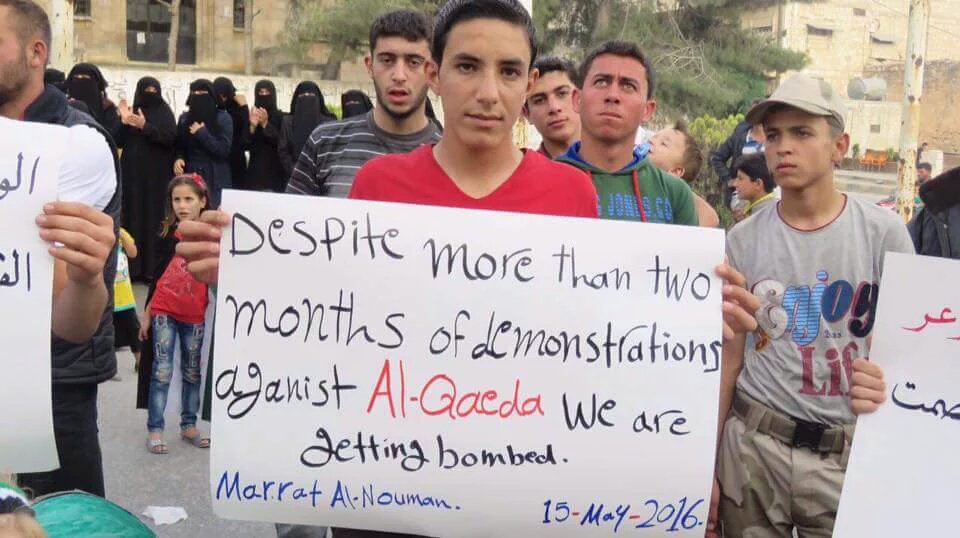 Despite more than two
months of demonstrations
aganist Al-Qaeda we are
getting bombed.
Marrat Al-Nouman. 15-May-2016.
Enjoy
Life